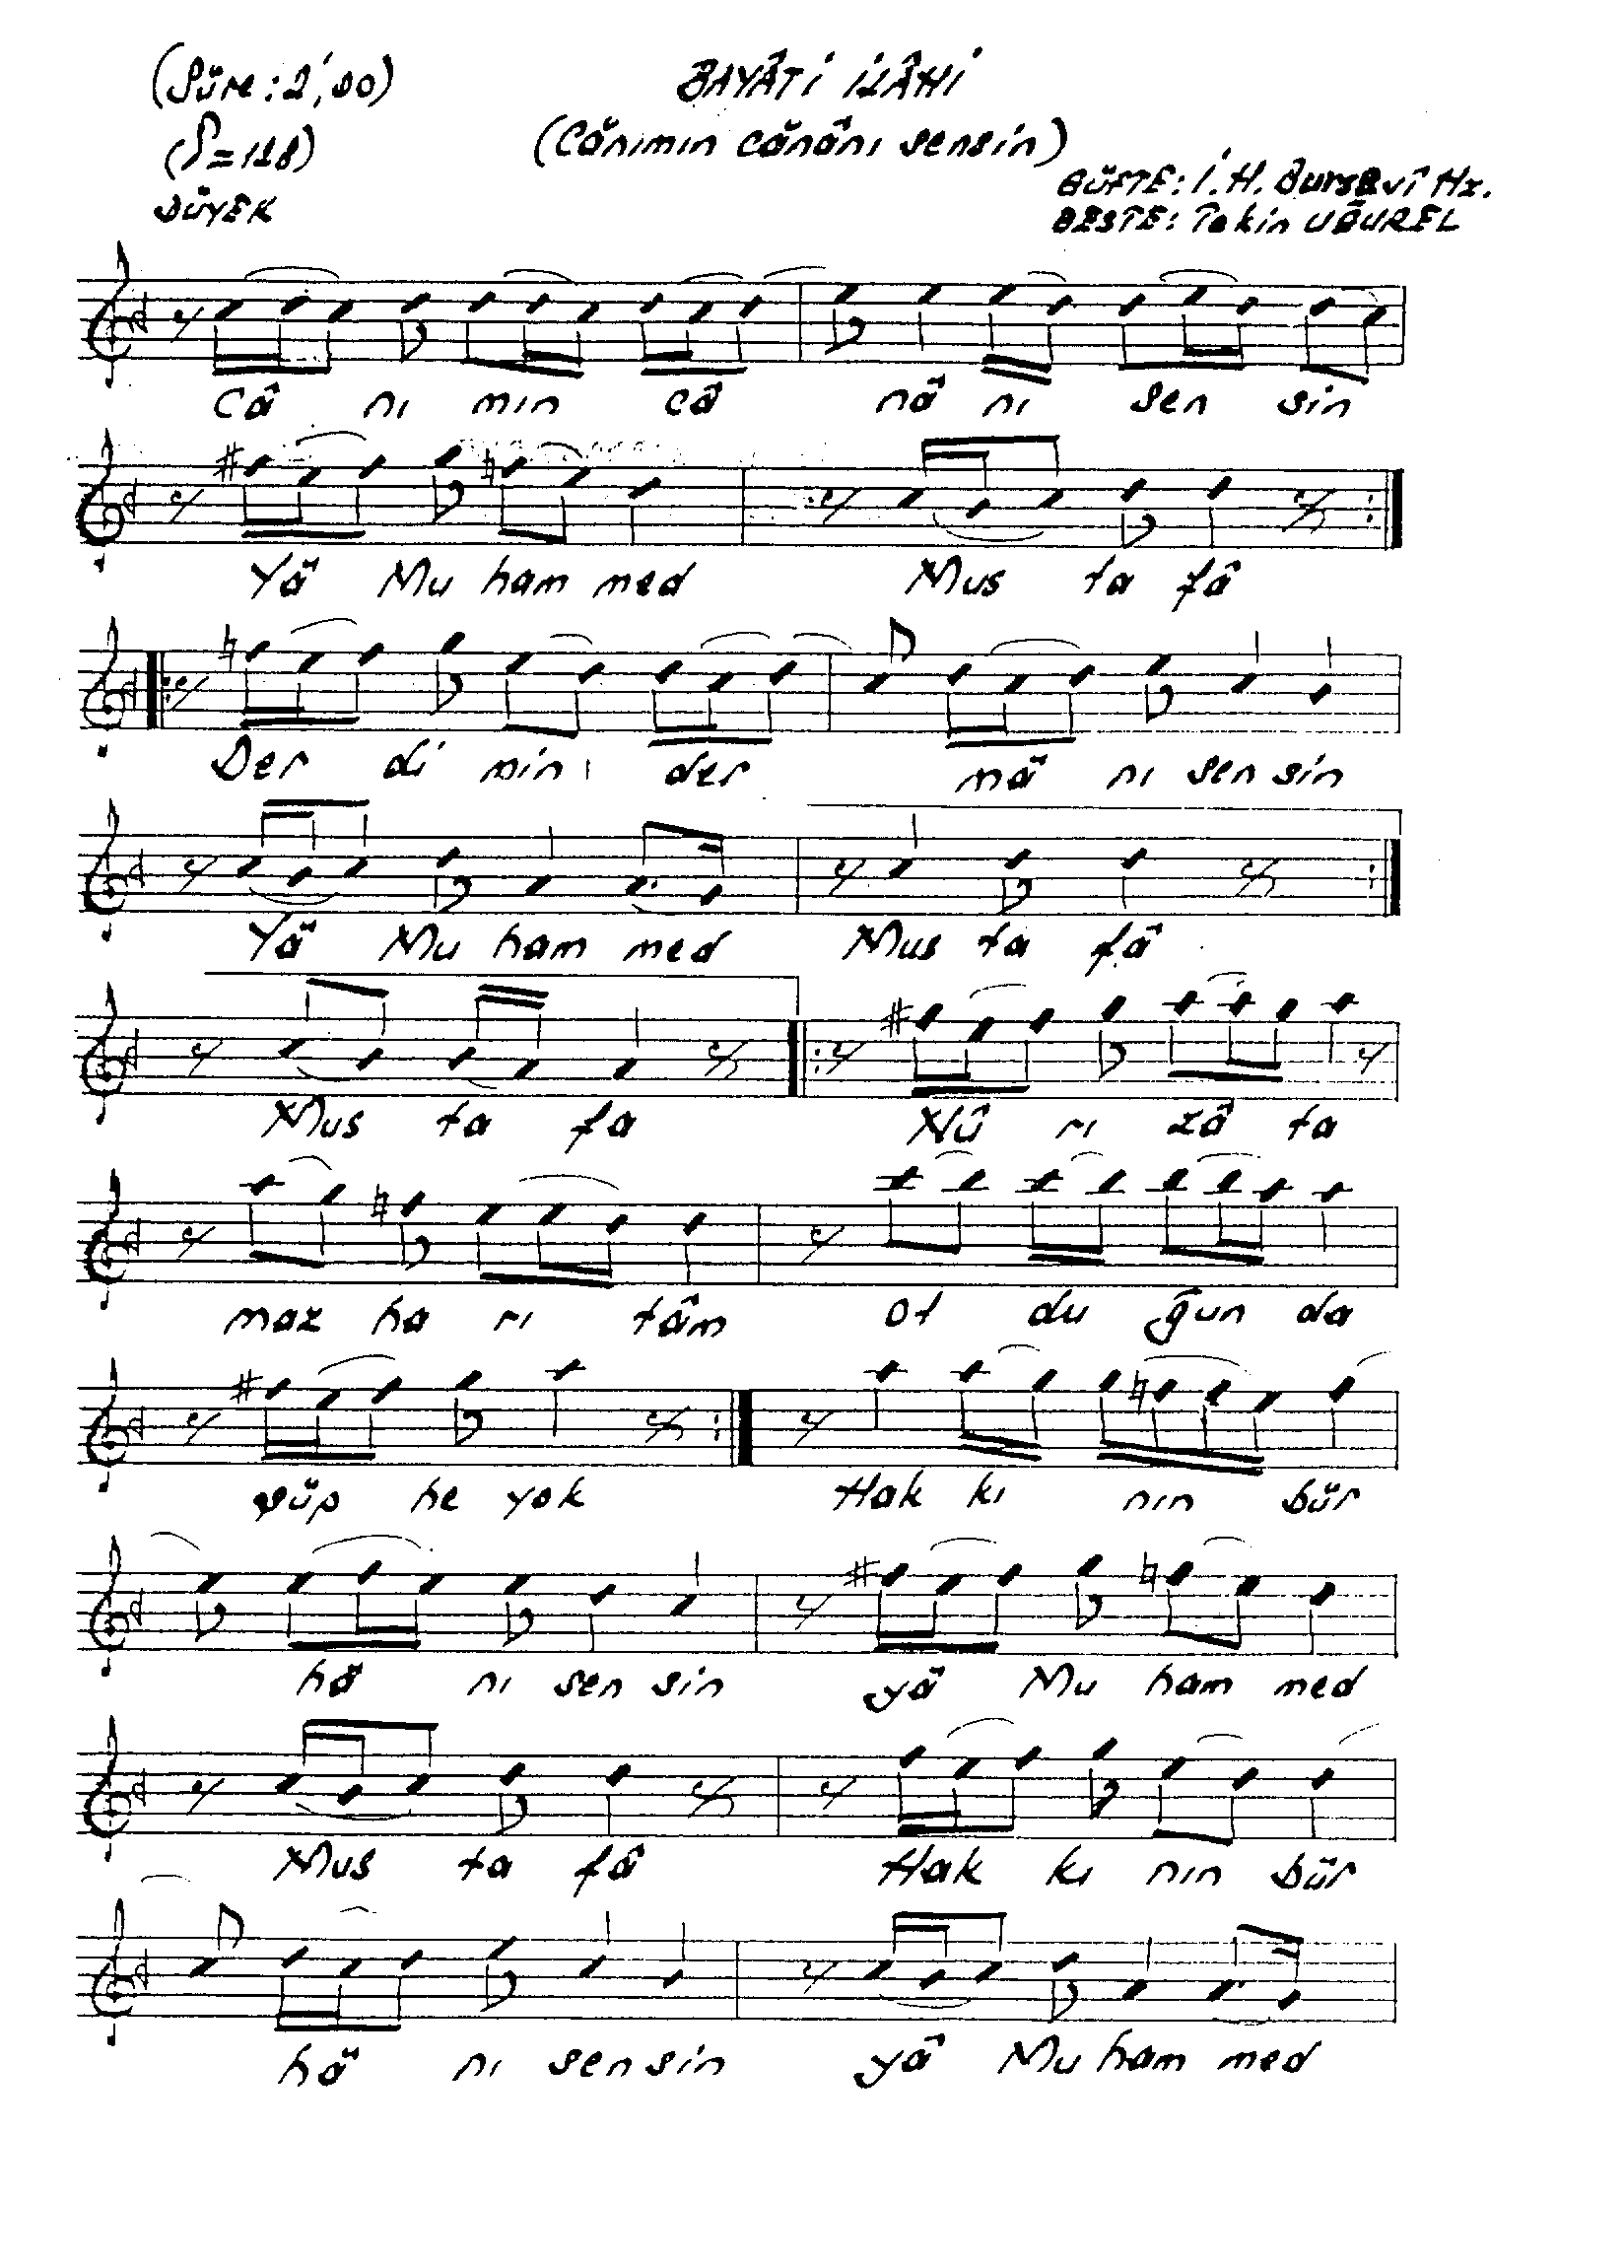 (Süre: 2', 00)
BAYÂTİ İLÂHİ
(♪=118)
(Cânımın cânânı sensin)
DÜYEK
GÜFTE: İ. H. Bursavî Hz.
BESTE: Tekin UĞUREL
Câ nı mın câ nâ nı sen sin
Yâ Mu ham med Mus ta fâ
Der di min der mâ nı sen sin
Yâ Mu ham med Mus ta fâ
Mus ta fa Nû rı zâ ta
maz ha rı tâm Ol du ğun da
şüp he yok Hak kı nın bür
hâ nı sen sin yâ Mu ham med
Mus ta fâ Hak kı nın bür
hâ nı sen sin yâ Mu ham med